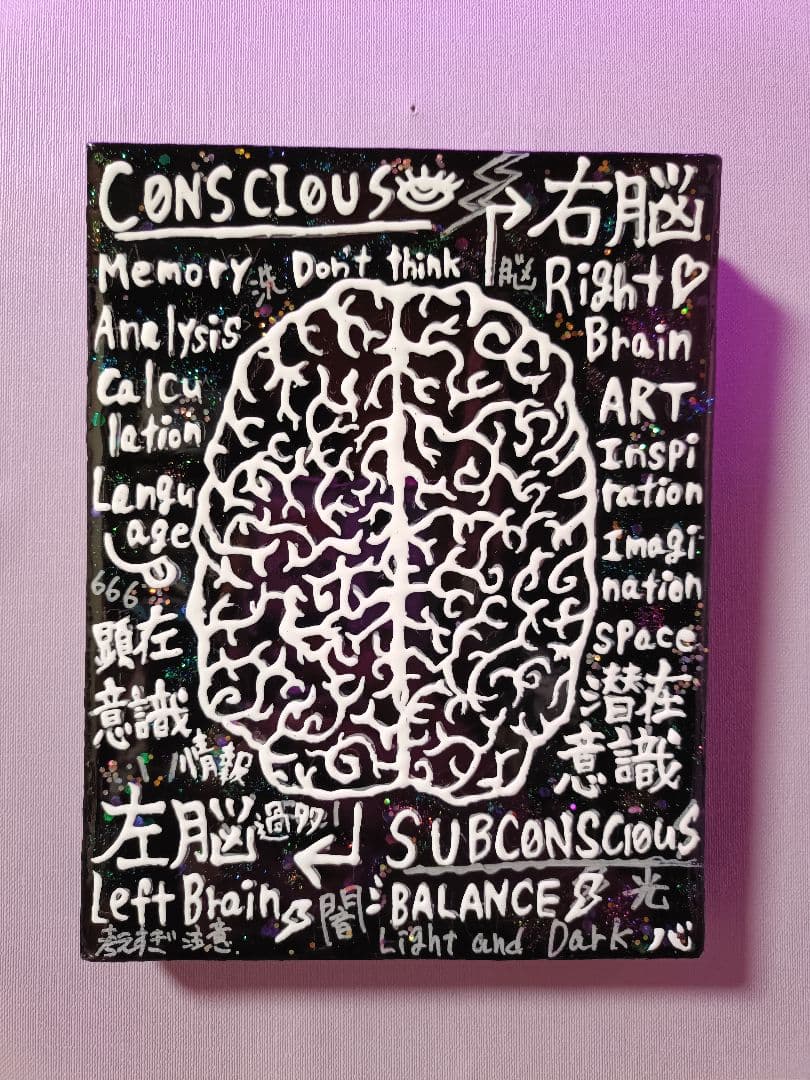 CONSCIOUS
右脳
Memory
洗
Don't think
脳
Right
Brain
Analysis
Calcu
lation
ART
Inspi
ration
Langu
age
Imagi
nation
666
space
顕在
意識
潜在
意識
情報
過多!
左脳
SUBCONSCIOUS
Left Brain
闇
BALANCE
光
考えすぎ注意.
Light and Dark
心